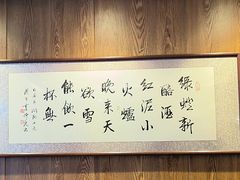 綠螘新
醅酒
紅泥小
火爐
晚來天
欲雪
能飲一
杯無